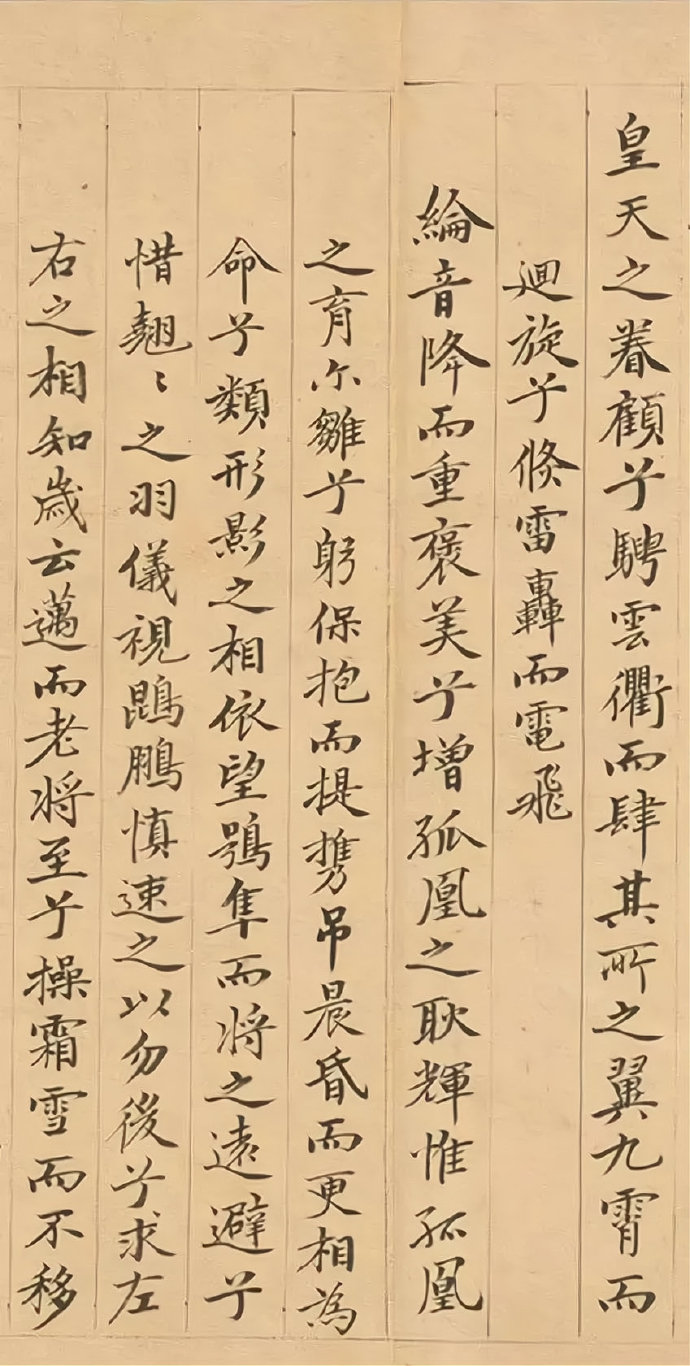 皇天之眷顧兮騁雲衢而肆其所之翼九霄而
迴旋兮倏雷轟而電飛
綸音降而重褒美兮增孤凰之耿輝惟孤凰
之育尔雛兮躬保抱而提携吊晨昏而更相為
命兮類形影之相依望鶚隼而将之遠避兮
惜翹〻之羽儀視鵾鵬慎速之以勿後兮求左
右之相知歳云邁而老将至兮操霜雪而不移